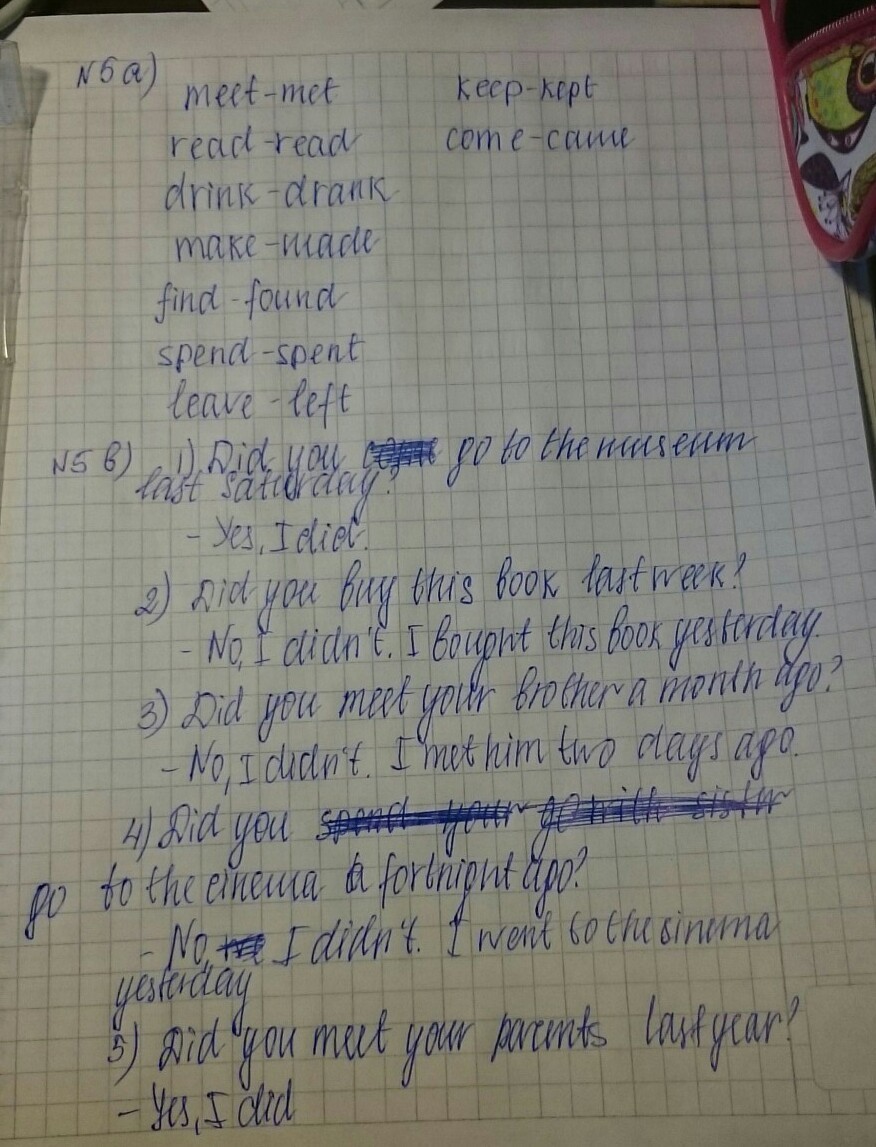 N5 a)
meet-met keep-kept
read-read come-came
drink-drank
make-made
find-found
spend-spent
leave-left
N5 b) 1) Did you go to the museum
last saturday?
- Yes, I did.
2) Did you buy this book last week?
- No, I didn't. I bought this book yesterday.
3) Did you meet your brother a month ago?
- No, I didn't. I met him two days ago.
4) Did you spend your go with sister
go to the cinema a fortnight ago?
- No, I didn't. I went to the sinema
yesterday
5) Did you meet your parents last year?
- Yes, I did